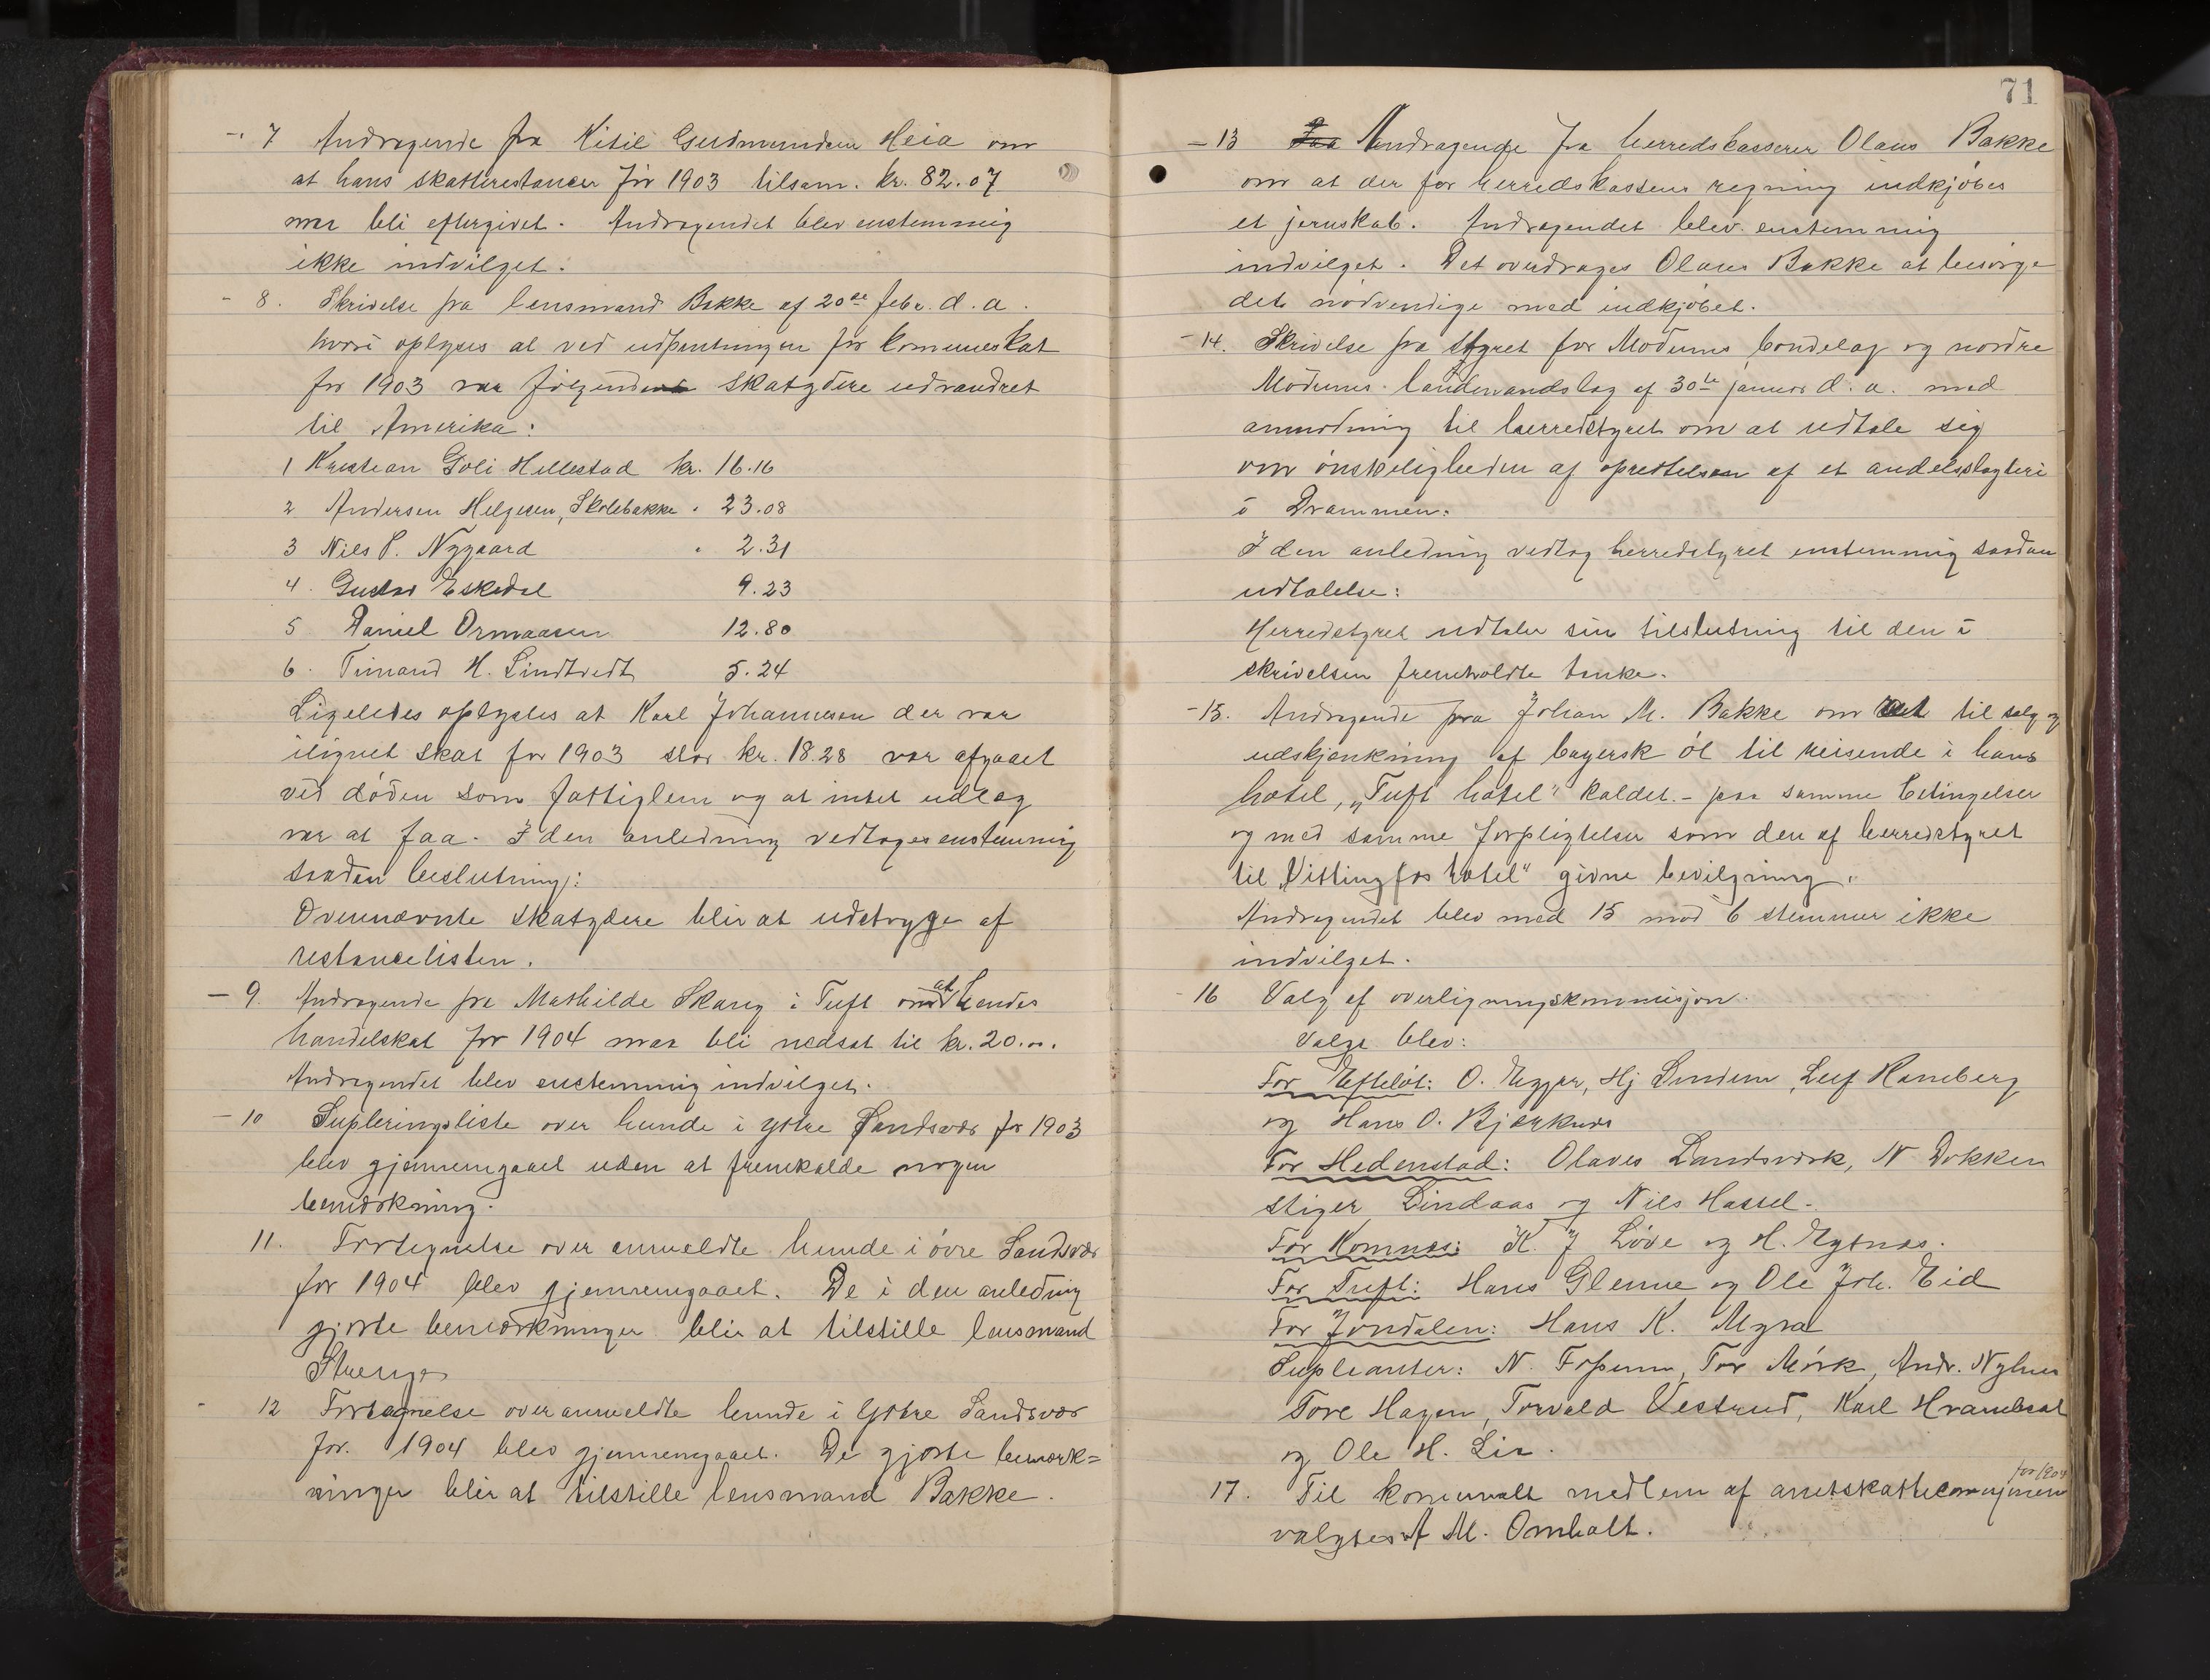 - 7 Andragende fra Kitil Gudmundsen Heia om
at hans skatterestancer for 1903 tilsam. kr. 82.07
maa bli eftergivet. Andragendet blev enstemmig
ikke indvilget.
- 8. Skrivelse fra lensmand Bakke af 20de febr. d. a.
hvori oplyses at ved udpantningen for kommuneskat
for 1903 var følgende skatydere udvandret
til Amerika:
1 Kristian Goli Hellestad kr. 16.16
2 Andersen Helgesen, Skolebakke " 23.08
3 Nils P. Nygaard " 2.31
4. Gustav Eskedal 9.23
5 Daniel Ormaasen 12.80
6. Timand H. Lindtvedt 5.24
Ligeledes oplystes at Karl Johannesen der var
ilignet skat for 1903 stor kr. 18.28 var afgaaet
ved døden som fattiglem og at intet udlæg
var at faa. I den anledning vedtoges enstemmig
saadan beslutning:
Ovennævnte skatydere blir at udstryge af
restancelisten.
- 9. Andragende fra Mathilde Skarg i Tuft om at hendes
handelskat for 1904 maa bli nedsat til kr. 20.00.
Andragendet blev enstemmig indvilget.
- 10 Supleringsliste over hunde i ytre Sandsvær for 1903
blev gjennemgaaet uden at fremkalde nogen
bemærkning.
11. Fortegnelse over anmeldte hunde i øvre Sandsvær
for 1904 blev gjennemgaaet. De i den anledning
gjorte bemærkninger blir at tilstille lensmand
Strenge
- 12 Fortegnelse over anmeldte hunde i Ytre Sandsvær
for 1904 blev gjennemgaaet. De gjorte bemærk=
ninger blir at tilstille lensmand Bakke.
71
- 13 Andragende fra herredskasserer Olaus Bakke
om at der for herredskassens regning indkjøbes
et jernskab. Andragendet blev enstemmig
indvilget. Det overdrages Olaus Bakke at besørge
det nødvendige med indkjøbet.
- 14. Skrivelse fra styret for Modums bondelag og nordre
Modums landmandslag af 30te januar d. a. med
anmodning til herredstyret om at udtale sig
om ønskeligheden af oprettelsen af et andelsslagteri
i Drammen.
I den anledning vedtog herredstyret enstemmig saadan
udtalelse:
Herredstyret udtaler sin tilslutning til den i
skrivelsen fremholdte tanke.
- 15. Andragende fra Johan M. Bakke om ret til salg og
udskjænkning af bayersk øl til reisende i hans
hotel, "Tuft hotel" kaldet. - paa samme betingelser
og med samme forpligtelser som den af herredstyret
til "Vittingfos hotel" givne bevilgning.
Andragendet blev med 15 mod 6 stemmer ikke
indvilget.
- 16 Valg af overligningskommisjon.
Valgt blev:
For Efteløt: O. Egger, Hj Smidem, Leif Ramberg
og Hans O. Bjerknes
For Hedenstad: Olaves Landsverk, N Dokken
stiger Lindaas og Nils Hassel.
For Komnes: K. J Løve og H. Nygnæs.
For Tuft: Hans Glenne og Ole Joh. Eid
For Jondalen: Hans K. Myra
Supleanter: N. Fossum, Tor Mørk, Andr. Nyhus
Tore Hagen, Torvald Vestrud, Karl Hvambsal
og Ole H. Lia.
17. Til komunalt medlem af amtskattecomisjonen for 1904
valgtes A M. Omholt.